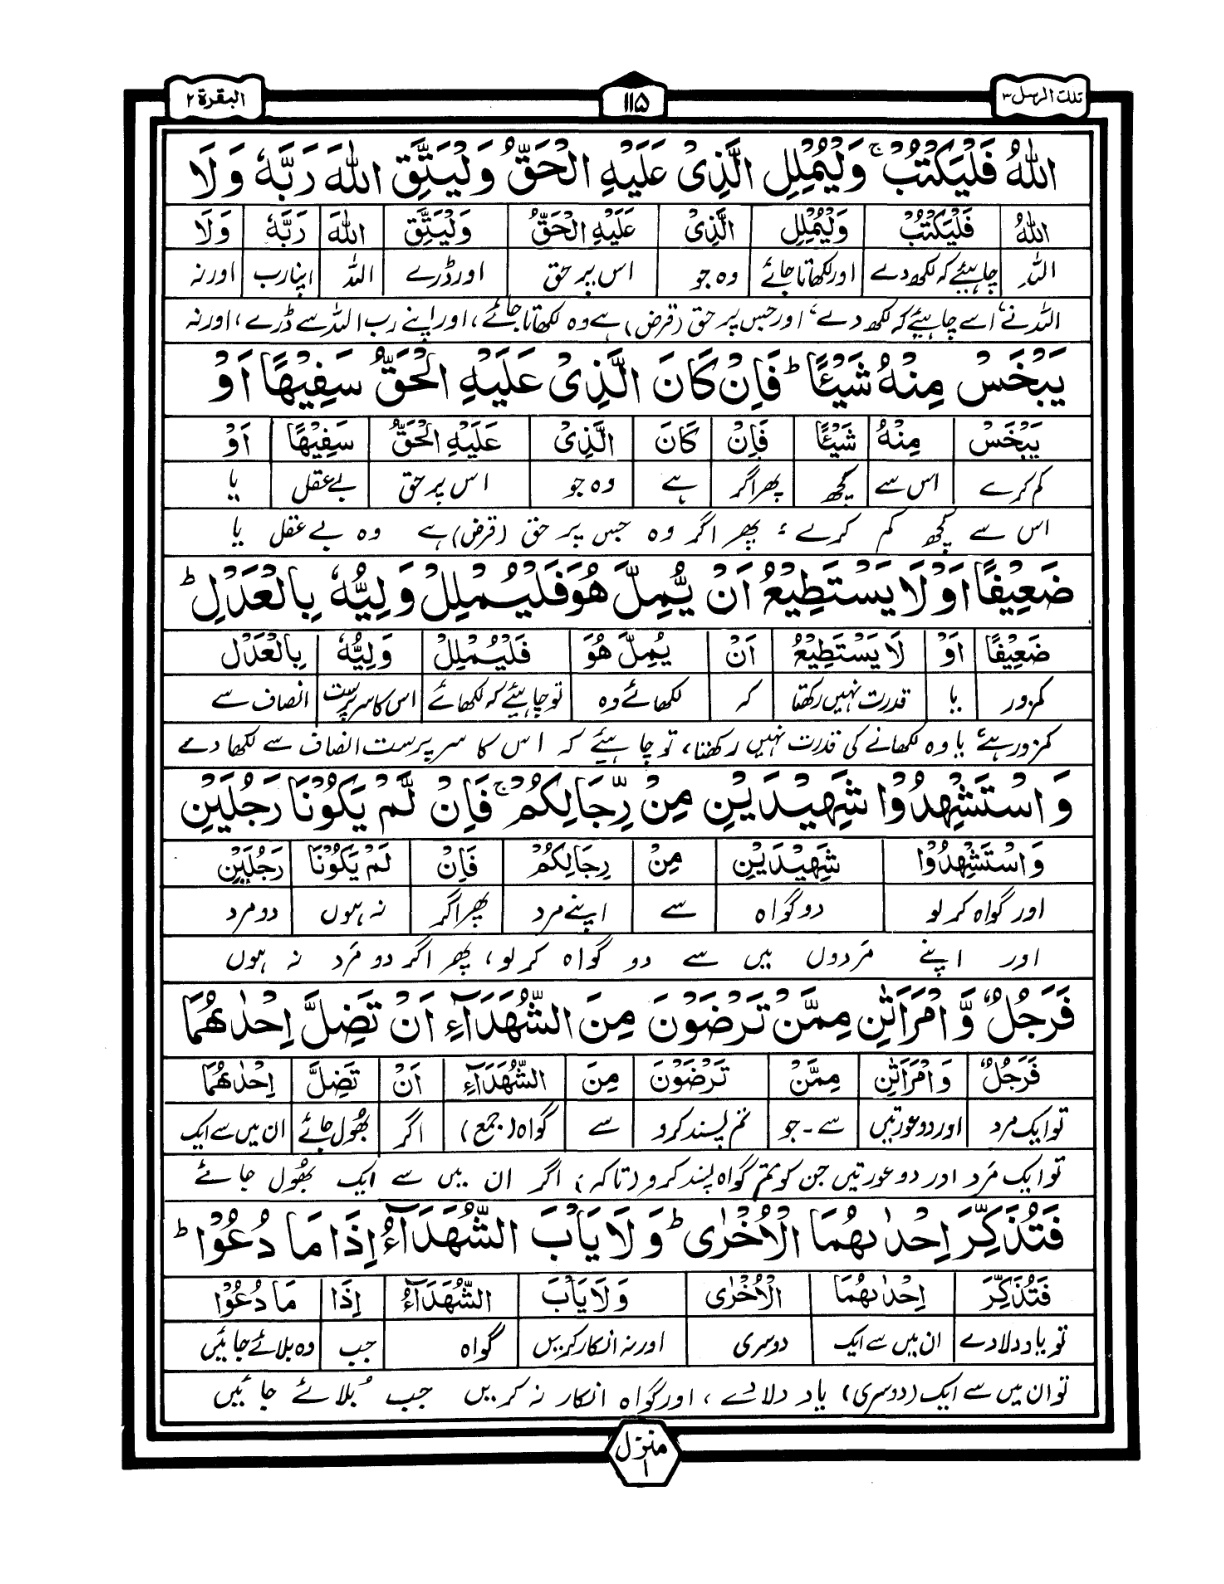 تلك الرسل ٣
١١٥
البقرة ٢
اللهُ فَلْيَكْتُبْ ۚ وَلْيُمْلِلِ الَّذِىْ عَلَيْهِ الْحَقُّ وَلْيَتَّقِ اللهَ رَبَّهٗ وَلَا
اللهُ فَلْيَكْتُبْ وَلْيُمْلِلِ الَّذِىْ عَلَيْهِ الْحَقُّ وَلْيَتَّقِ اللهَ رَبَّهٗ وَلَا
اللہ چاہیئے کہ لکھ دے اور لکھاتا جائے وہ جو اس پر حق اور ڈرے اللہ اپنا رب اور نہ
اللہ نے، اسے چاہیئے کہ لکھ دے، اور جس پر حق (قرض) ہے وہ لکھاتا جائے، اور اپنے رب اللہ سے ڈرے، اور نہ
يَبْخَسْ مِنْهُ شَيْئًا ؕ فَاِنْ كَانَ الَّذِىْ عَلَيْهِ الْحَقُّ سَفِيْهًا اَوْ
يَبْخَسْ مِنْهُ شَيْئًا فَاِنْ كَانَ الَّذِىْ عَلَيْهِ الْحَقُّ سَفِيْهًا اَوْ
کم کرے اس سے کچھ پھر اگر ہے وہ جو اس پر حق بے عقل یا
اس سے کچھ کم کرے ، پھر اگر وہ جس پر حق (قرض) ہے وہ بے عقل یا
ضَعِيْفًا اَوْ لَا يَسْتَطِيْعُ اَنْ يُّمِلَّ هُوَ فَلْيُمْلِلْ وَلِيُّهٗ بِالْعَدْلِ ؕ
ضَعِيْفًا اَوْ لَا يَسْتَطِيْعُ اَنْ يُمِلَّ هُوَ فَلْيُمْلِلْ وَلِيُّهٗ بِالْعَدْلِ
کمزور یا قدرت نہیں رکھتا کہ لکھائے وہ تو چاہیئے کہ لکھائے اس کا سرپرست انصاف سے
کمزور ہے، یا وہ لکھانے کی قدرت نہیں رکھتا، تو چاہیئے کہ اس کا سرپرست انصاف سے لکھا دے
وَاسْتَشْهِدُوْا شَهِيْدَيْنِ مِنْ رِّجَالِكُمْ ۚ فَاِنْ لَّمْ يَكُوْنَا رَجُلَيْنِ
وَاسْتَشْهِدُوْا شَهِيْدَيْنِ مِنْ رِجَالِكُمْ فَاِنْ لَمْ يَكُوْنَا رَجُلَيْنِ
اور گواہ کرلو دو گواہ سے اپنے مرد پھر اگر نہ ہوں دو مرد
اور اپنے مَردوں میں سے دو گواہ کر لو، پھر اگر دو مَرد نہ ہوں
فَرَجُلٌ وَّامْرَاَتٰنِ مِمَّنْ تَرْضَوْنَ مِنَ الشُّهَدَآءِ اَنْ تَضِلَّ اِحْدٰىهُمَا
فَرَجُلٌ وَامْرَاَتٰنِ مِمَّنْ تَرْضَوْنَ مِنَ الشُّهَدَآءِ اَنْ تَضِلَّ اِحْدٰىهُمَا
تو ایک مرد اور دو عورتیں سے ۔ جو تم پسند کرو سے گواہ (جمع) اگر بھول جائے ان میں سے ایک
تو ایک مَرد اور دو عورتیں جن کو تم گواہ پسند کرو (تاکہ) اگر ان میں سے ایک بھُول جائے
فَتُذَكِّرَ اِحْدٰىهُمَا الْاُخْرٰى ؕ وَلَا يَاْبَ الشُّهَدَآءُ اِذَا مَا دُعُوْا ؕ
فَتُذَكِّرَ اِحْدٰىهُمَا الْاُخْرٰى وَلَا يَاْبَ الشُّهَدَآءُ اِذَا مَا دُعُوْا
تو یاد دلا دے ان میں سے ایک دوسری اور نہ انکار کریں گواہ جب وہ بلائے جائیں
تو ان میں سے ایک (دوسری) یاد دلا دے ، اور گواہ انکار نہ کریں جب بُلائے جائیں
منزل ١